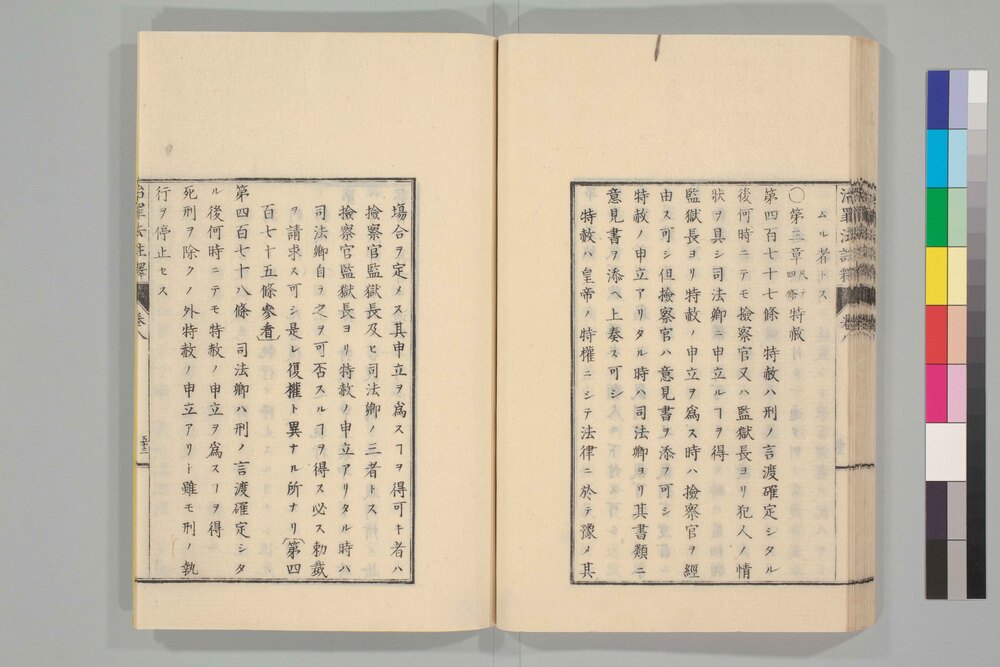 治罪法註釋 卷八
ムル者トス
〇第五章 凡テ四條 特赦
第四百七十七條 特赦ハ刑ノ言渡確定シタル
後何時ニテモ撿察官又ハ監獄長ヨリ犯人ノ情
狀ヲ具シ司法卿ニ申立ルヿヲ得
監獄長ヨリ特赦ノ申立ヲ爲ス時ハ撿察官ヲ經
由ス可シ但撿察官ハ意見書ヲ添フ可シ
特赦ノ申立アリタル時ハ司法卿ヨリ其書類ニ
意見書ヲ添ヘ上奏ス可シ
特赦ハ皇帝ノ特權ニシテ法律ニ於テ豫メ其
塲合ヲ定メス其申立ヲ爲スヿヲ得可キ者ハ
撿察官監獄長及ヒ司法卿ノ三者トス
撿察官監獄長ヨリ特赦ノ申立アリタル時ハ
司法卿自ラ之ヲ可否スルヿヲ得ス必ス勅裁
ヲ請求ス可シ是レ復權ト異ナル所ナリ(第四
百七十五條參看)
第四百七十八條 司法卿ハ刑ノ言渡確定シタ
ル後何時ニテモ特赦ノ申立ヲ爲スヿヲ得
死刑ヲ除クノ外特赦ノ申立アリト雖モ刑ノ執
行ヲ停止セス
治罪法註釋 卷八